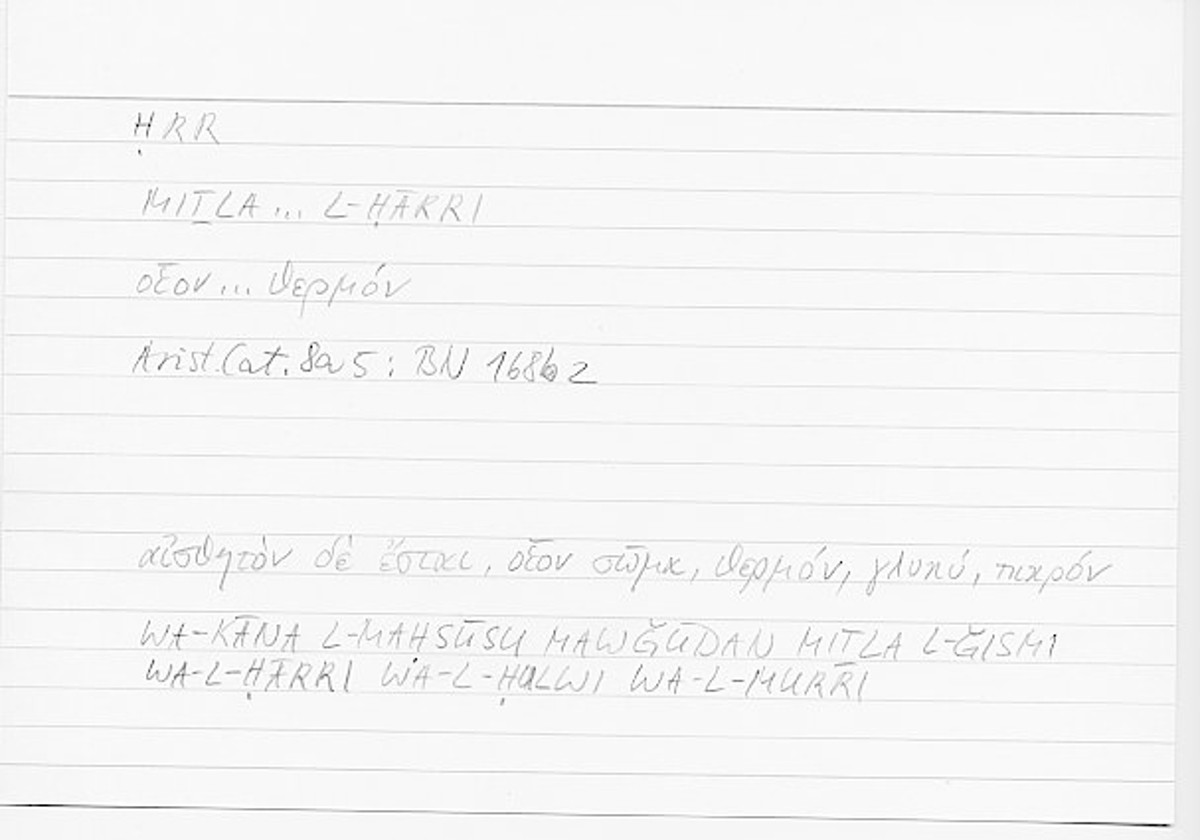 ḤRR
MIṮLA... L-ḤĀRRI
οἷον... θερμόν
Arist. Cat. 8a5 : BN 168b2
αἰσθητὸν δὲ ἔσται, οἷον σῶμα, θερμόν, γλυκύ, πικρόν
WA-KĀNA L-MAḤSŪSU MAWǦŪDAN MIṮLA L-ǦISMI
WA-L-ḤĀRRI WA-L-ḤULWI WA-L-MURRI